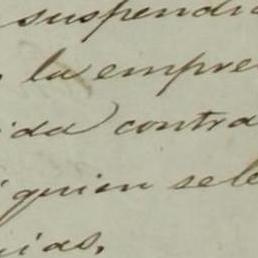 suspendi
la empre
ida contra
quien sele
ias.